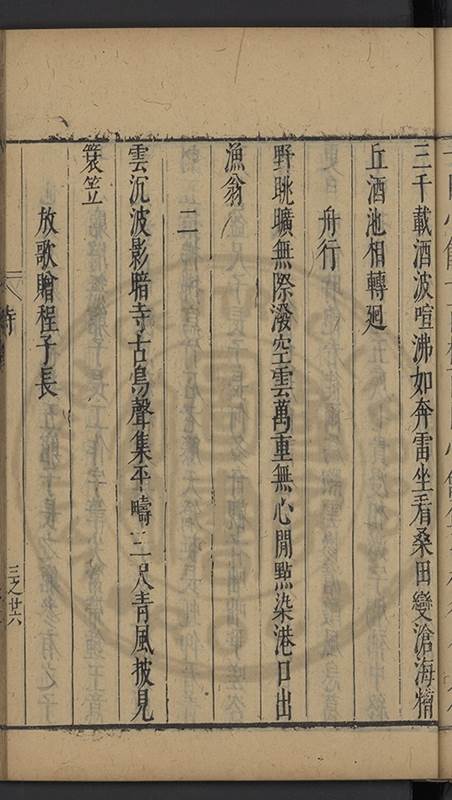 三千載酒波喧沸如奔雷坐看桑田變滄海糟
丘酒池相轉廻
舟行
野眺曠無際潑空雲萬重無心閒點染港口出
漁翁
二
雲沉波影暗寺古鳥聲集平疇三尺青風披見
簑笠
放歌贈程子長
詩
三之廿六